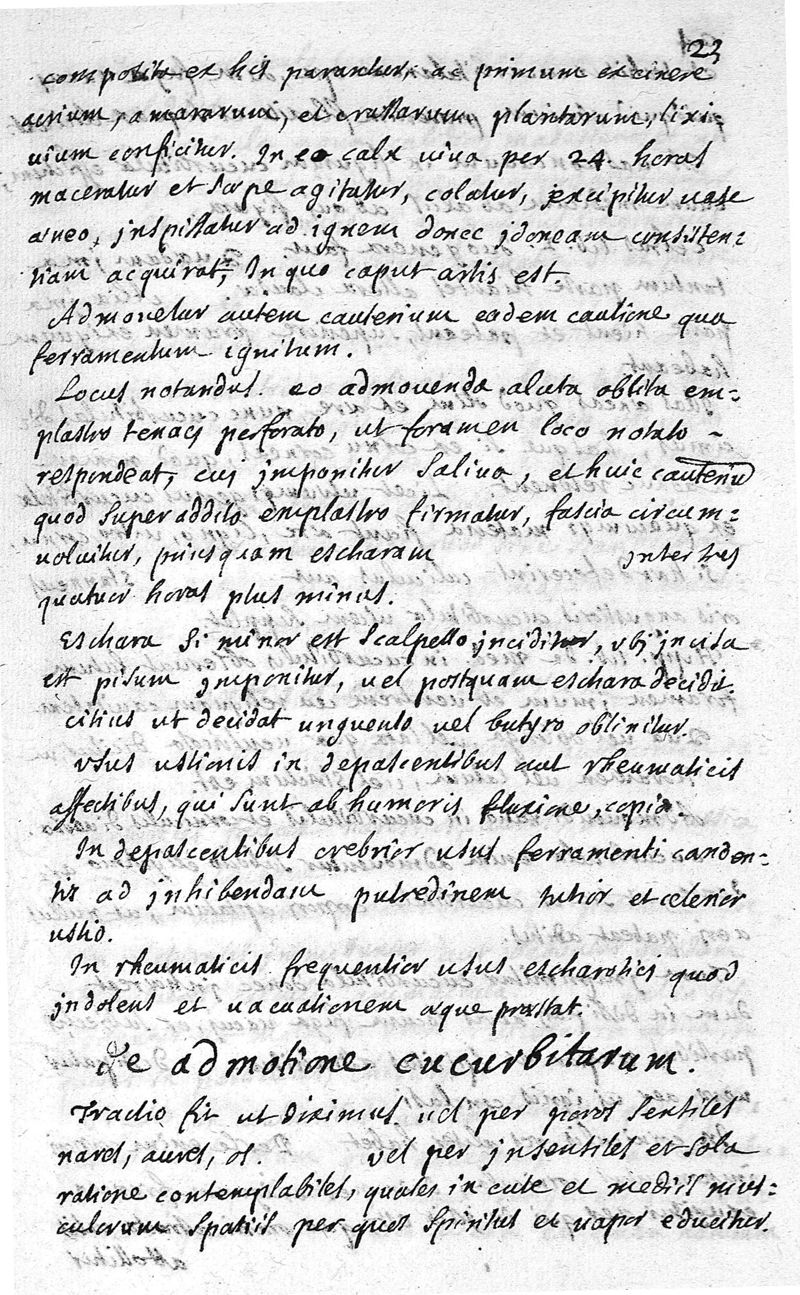 23
composita ex his parantur, ac primum ex cinere
acrium, amararum, et crassarum plantarum, lixi-
uium conficitur. In eo calx uiua per 24. horas
maceratur et sæpe agitatur, colatur, excipitur uase
æneo, jnspissatur ad ignem donec jdoneam consisten=
tiam acquirat, In quo caput artis est.
Admouetur autem cauterium eadem cautione qua
ferramentum ignitum.
Locus notandus. eo admouenda aluta oblita em=
plastro tenaci perforato, ut foramen loco notato -
respondeat, cui jmponitur saliua, et huic cauteriu
quod superaddito emplastro firmatur, fascia circum=
uoluitur, priusquam escharam jnter tres
quatuor horas plus minus.
Eschara si minor est scalpello jnciditur, vbj jncisa
est pisum jmponitur, uel postquam eschara decidit.
citius ut decidat unguento uel butyro oblinitur.
vsus ustionis in depascentibus aut rheumaticis
affectibus, qui sunt ab humoris fluxione, copia.
In depascentibus crebrior usus ferramenti canden=
tis ad jnhibendam putredinem tutior et celerior
ustio.
In rheumaticis frequentior usus escharoticj quod
jndolens et uacuationem æque præstat.
De admotione cucurbitarum.
Tractio fit ut diximus uel per poros sensiles
nares, aures, os. vel per jnsensiles et sola
ratione contemplabiles, quales in cute et mediis mus=
culorum spatiis per quos spiritus et uapor educitur.